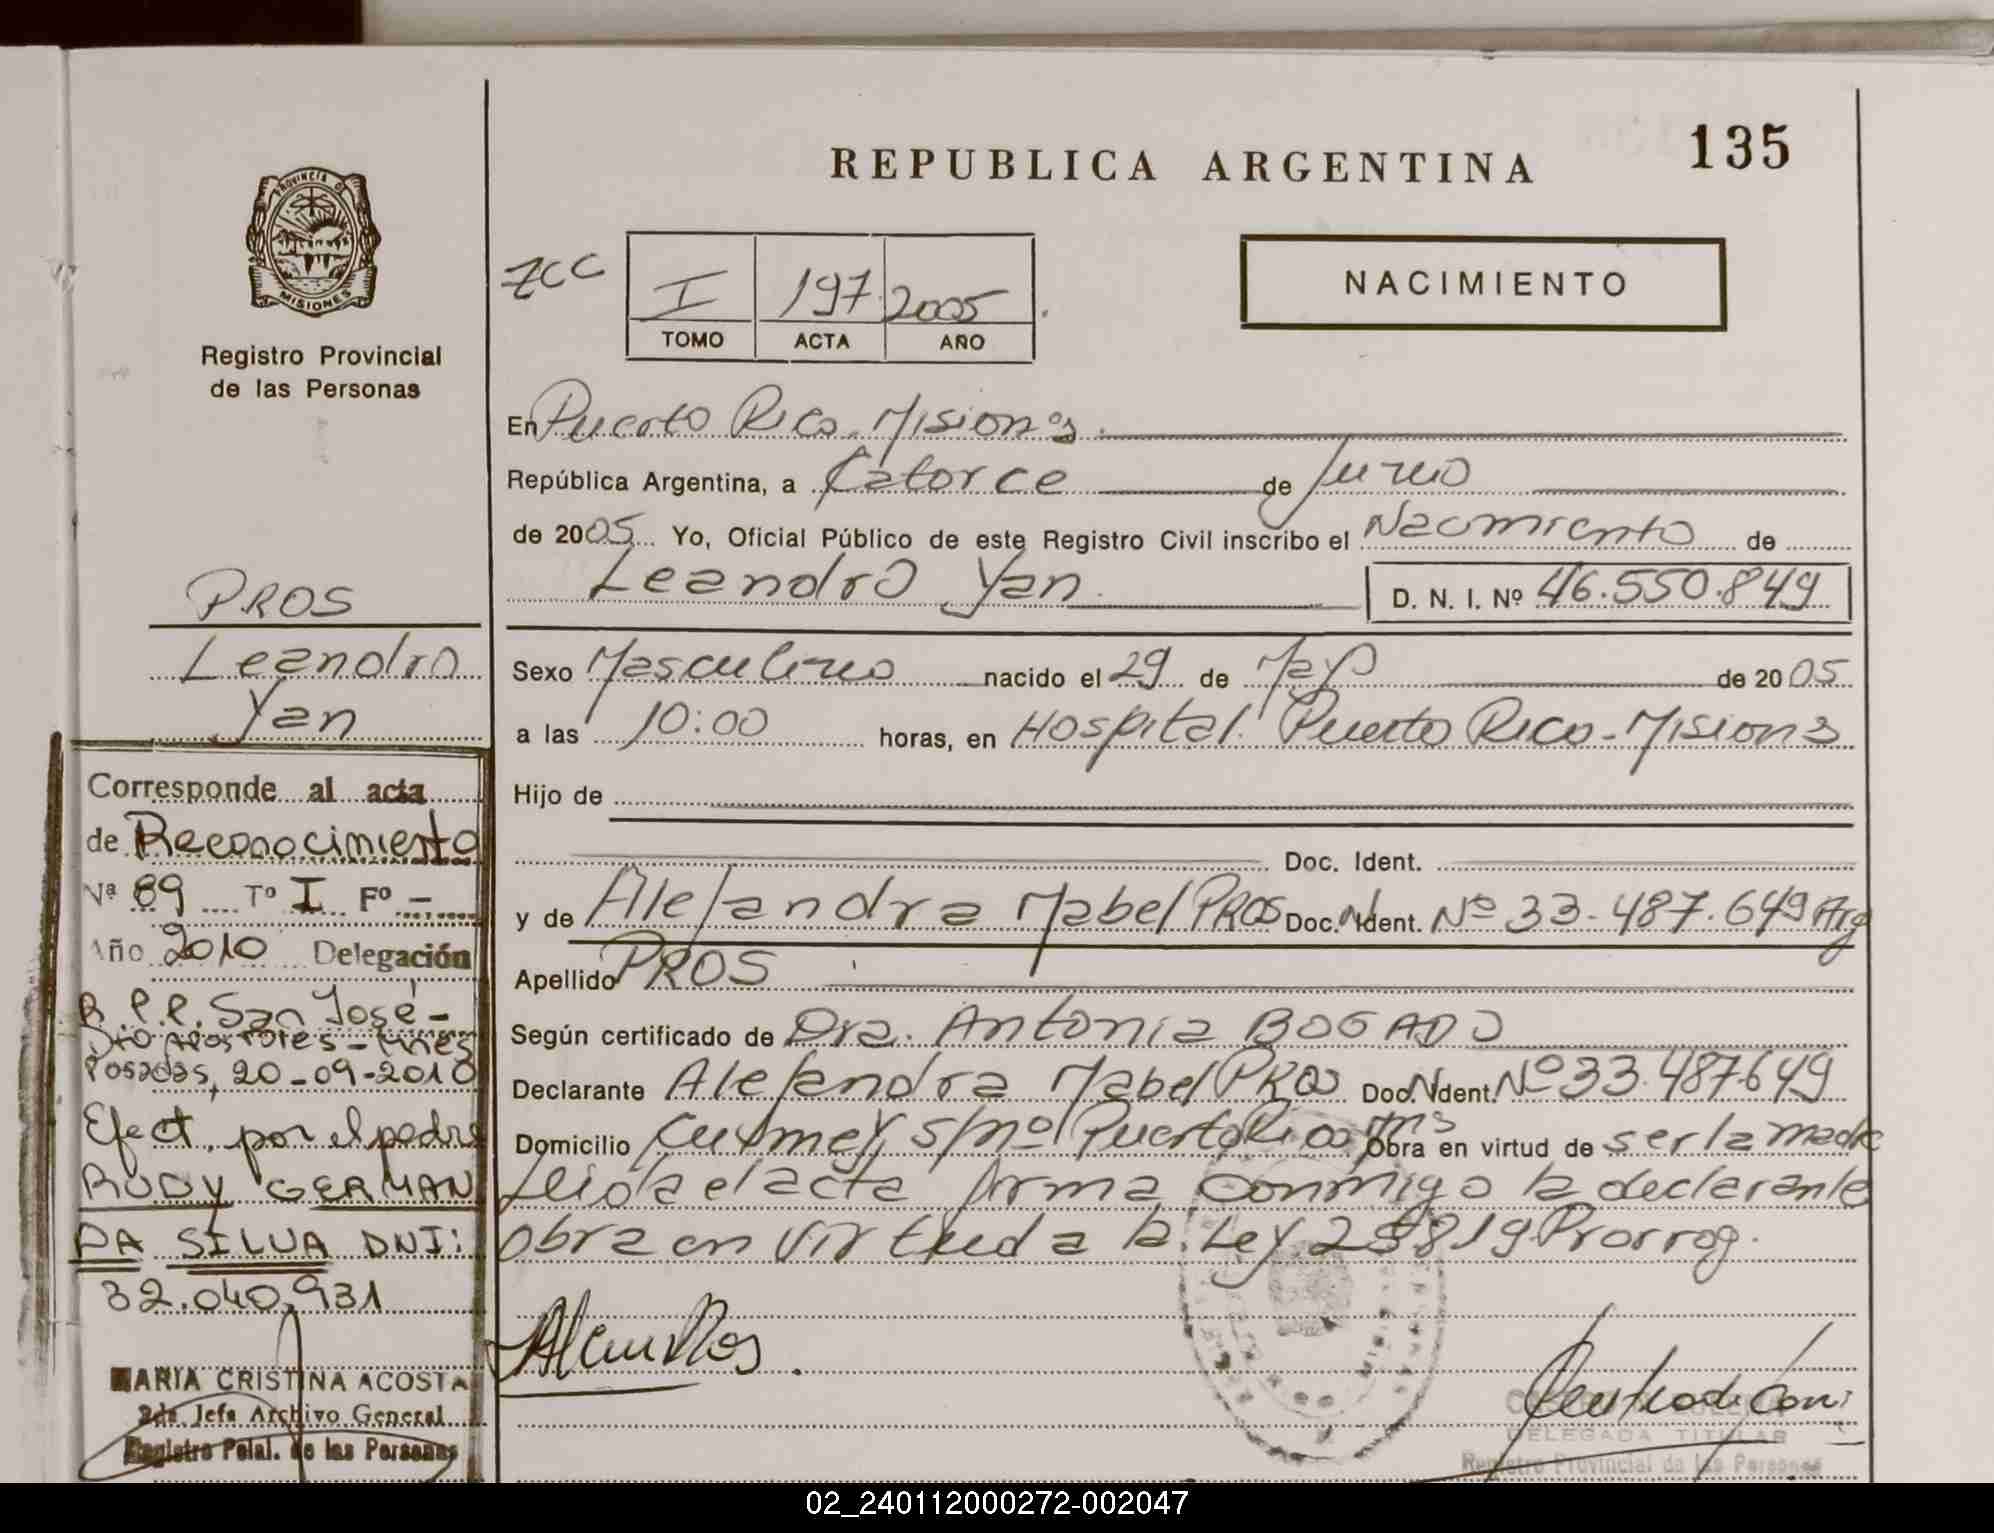 REPUBLICA ARGENTINA
135
PROVINCIA DE
MISIONES
Registro Provincial
de las Personas
ZCC
I 197 2005
TOMO ACTA AÑO
NACIMIENTO
En Puerto Rico. Misiones.
República Argentina, a Catorce de Junio
de 2005 Yo, Oficial Público de este Registro Civil inscribo el Nacimiento de
Leandro Yan D. N. I. Nº 46.550.849
Sexo Masculino nacido el 29 de Mayo de 2005
a las 10:00 horas, en Hospital Puerto Rico-Misiones
Hijo de
Doc. Ident.
y de Alejandra Mabel PROS Doc. Ident. Nº 33.487.649 Arg
Apellido PROS
Según certificado de Dra. Antonia BOGADO
Declarante Alejandra Mabel PROS Doc. Ident. Nº 33.487649
Domicilio Cuxmey s/nº Puerto Rico Mns Obra en virtud de ser la madre
Leida el acta firma conmigo la declarante
obra en virtud a la Ley 25819 Prorrog.
PROS
Leandro
Yan
Corresponde al acta
de Reconocimiento
Nª 89 Tº I Fº -
Año 2010 Delegación
R.P.P. San José-
Dto Apostoles-Mnes
Posadas, 20-09-2010
Efect. por el padre
RUDY GERMAN
DA SILVA DNI:
32.040.931
MARIA CRISTINA ACOSTA
2da. Jefa Archivo General
Registro Pcial. de las Personas
DELEGADA TITULAR
Registro Provincial de las Personas
02_240112000272-002047